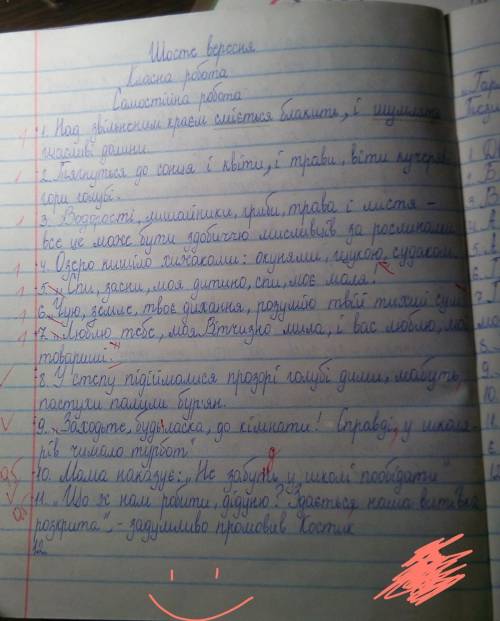 Шосте вересня
Класна робота
Самостійна робота
1. Над звільненим краєм сміється блакить, і шумлять
щасливі долини.
2. Тягнуться до сонця і квіти, і трави, віти кучеряві
гори голубі.
3. Водорості, лишайники, гриби, трава і листя –
все це може бути здобиччю мисливців за рослинами
4. Озеро кишіло хижаками: окунями, щукою, судаком.
5. Спи, засни, моя дитино, спи, моє маля.
6. Чую, земле, твоє дихання, розумію твій тихий сум
7. Люблю тебе, моя Вітчизно мила, і вас люблю, мої
товариші.
8. У степу підіймалися прозорі голубі дими, мабуть,
пастухи палили бур'ян.
9. Заходьте, будь ласка, до кімнати! Справді, у школя-
рів чимало турбот"
10. Мама наказує: „Не забудь у школі пообідати"
11. „Що ж нам робити, дідуню? Здається наша витівка
розкрита", – задумливо промовив Костик
12